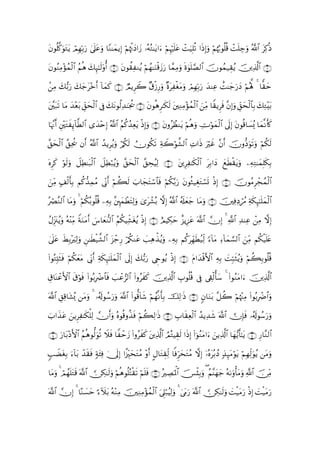 ذُكِرَ ٱللَّهُ وَجِلَتۡ قُلُوبُهُمۡ وَإِذَا تُلِيَتۡ عَلَيۡهِمۡ ءَايَٰتُهُۥ زَادَتۡهُمۡ إِيمَٰنٗا وَعَلَىٰ رَبِّهِمۡ يَتَوَكَّلُونَ
﴿٢﴾ ٱلَّذِينَ يُقِيمُونَ ٱلصَّلَوٰةَ وَمِمَّا رَزَقۡنَٰهُمۡ يُنفِقُونَ ﴿٣﴾ أُوْلَٰٓئِكَ هُمُ ٱلۡمُؤۡمِنُونَ
حَقّٗاۚ لَّهُمۡ دَرَجَٰتٌ عِندَ رَبِّهِمۡ وَمَغۡفِرَةٞ وَرِزۡقٞ كَرِيمٞ ﴿٤﴾ كَمَآ أَخۡرَجَكَ رَبُّكَ مِنۢ
بَيۡتِكَ بِٱلۡحَقِّ وَإِنَّ فَرِيقٗا مِّنَ ٱلۡمُؤۡمِنِينَ لَكَٰرِهُونَ ﴿٥﴾ يُجَٰدِلُونَكَ فِي ٱلۡحَقِّ بَعۡدَ مَا تَبَيَّنَ
كَأَنَّمَا يُسَاقُونَ إِلَى ٱلۡمَوۡتِ وَهُمۡ يَنظُرُونَ ﴿٦﴾ وَإِذۡ يَعِدُكُمُ ٱللَّهُ إِحۡدَى ٱلطَّآئِفَتَيۡنِ أَنَّهَا
لَكُمۡ وَتَوَدُّونَ أَنَّ غَيۡرَ ذَاتِ ٱلشَّوۡكَةِ تَكُونُ لَكُمۡ وَيُرِيدُ ٱللَّهُ أَن يُحِقَّ ٱلۡحَقَّ
بِكَلِمَٰتِهِۦ وَيَقۡطَعَ دَابِرَ ٱلۡكَٰفِرِينَ ﴿٧﴾ لِيُحِقَّ ٱلۡحَقَّ وَيُبۡطِلَ ٱلۡبَٰطِلَ وَلَوۡ كَرِهَ
ٱلۡمُجۡرِمُونَ ﴿٨﴾ إِذۡ تَسۡتَغِيثُونَ رَبَّكُمۡ فَٱسۡتَجَابَ لَكُمۡ أَنِّي مُمِدُّكُم بِأَلۡفٖ مِّنَ
ٱلۡمَلَٰٓئِكَةِ مُرۡدِفِينَ ﴿٩﴾ وَمَا جَعَلَهُ ٱللَّهُ إِلَّا بُشۡرَىٰ وَلِتَطۡمَئِنَّ بِهِۦ قُلُوبُكُمۡۚ وَمَا ٱلنَّصۡرُ
إِلَّا مِنۡ عِندِ ٱللَّهِۚ إِنَّ ٱللَّهَ عَزِيزٌ حَكِيمٌ ﴿١٠﴾ إِذۡ يُغَشِّيكُمُ ٱلنُّعَاسَ أَمَنَةٗ مِّنۡهُ وَيُنَزِّلُ
عَلَيۡكُم مِّنَ ٱلسَّمَآءِ مَآءٗ لِّيُطَهِّرَكُم بِهِۦ وَيُذۡهِبَ عَنكُمۡ رِجۡزَ ٱلشَّيۡطَٰنِ وَلِيَرۡبِطَ عَلَىٰ
قُلُوبِكُمۡ وَيُثَبِّتَ بِهِ ٱلۡأَقۡدَامَ ﴿١١﴾ إِذۡ يُوحِي رَبُّكَ إِلَى ٱلۡمَلَٰٓئِكَةِ أَنِّي مَعَكُمۡ فَثَبِّتُواْ
ٱلَّذِينَ ءَامَنُواْۚ سَأُلۡقِي فِي قُلُوبِ ٱلَّذِينَ كَفَرُواْ ٱلرُّعۡبَ فَٱضۡرِبُواْ فَوۡقَ ٱلۡأَعۡنَاقِ
وَٱضۡرِبُواْ مِنۡهُمۡ كُلَّ بَنَانٖ ﴿١٢﴾ ذَٰلِكَ بِأَنَّهُمۡ شَآقُّواْ ٱللَّهَ وَرَسُولَهُۥۚ وَمَن يُشَاقِقِ ٱللَّهَ
وَرَسُولَهُۥ فَإِنَّ ٱللَّهَ شَدِيدُ ٱلۡعِقَابِ ﴿١٣﴾ ذَٰلِكُمۡ فَذُوقُوهُ وَأَنَّ لِلۡكَٰفِرِينَ عَذَابَ
ٱلنَّارِ ﴿١٤﴾ يَٰٓأَيُّهَا ٱلَّذِينَ ءَامَنُوٓاْ إِذَا لَقِيتُمُ ٱلَّذِينَ كَفَرُواْ زَحۡفٗا فَلَا تُوَلُّوهُمُ ٱلۡأَدۡبَارَ ﴿١٥﴾
وَمَن يُوَلِّهِمۡ يَوۡمَئِذٖ دُبُرَهُۥٓ إِلَّا مُتَحَرِّفٗا لِّقِتَالٍ أَوۡ مُتَحَيِّزًا إِلَىٰ فِئَةٖ فَقَدۡ بَآءَ بِغَضَبٖ
مِّنَ ٱللَّهِ وَمَأۡوَىٰهُ جَهَنَّمُۖ وَبِئۡسَ ٱلۡمَصِيرُ ﴿١٦﴾ فَلَمۡ تَقۡتُلُوهُمۡ وَلَٰكِنَّ ٱللَّهَ قَتَلَهُمۡۚ وَمَا
رَمَيۡتَ إِذۡ رَمَيۡتَ وَلَٰكِنَّ ٱللَّهَ رَمَىٰۚ وَلِيُبۡلِيَ ٱلۡمُؤۡمِنِينَ مِنۡهُ بَلَآءً حَسَنًاۚ إِنَّ ٱللَّهَ